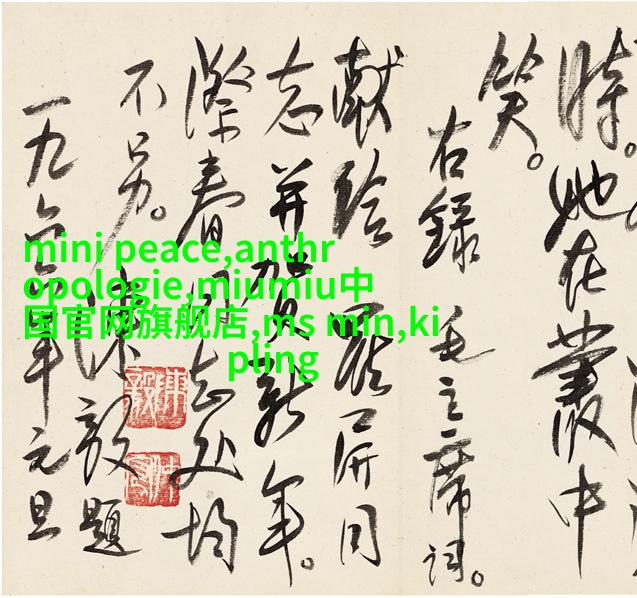 時。她在叢中
笑。
右録 毛主席词。
献给 罗屏同
志并贺新年。
際春同志处均
不另。
陈毅题
一九六四年元旦
mini peace,anthr
opologie,miumiu中
国官网旗舰店,ms min,ki
pling